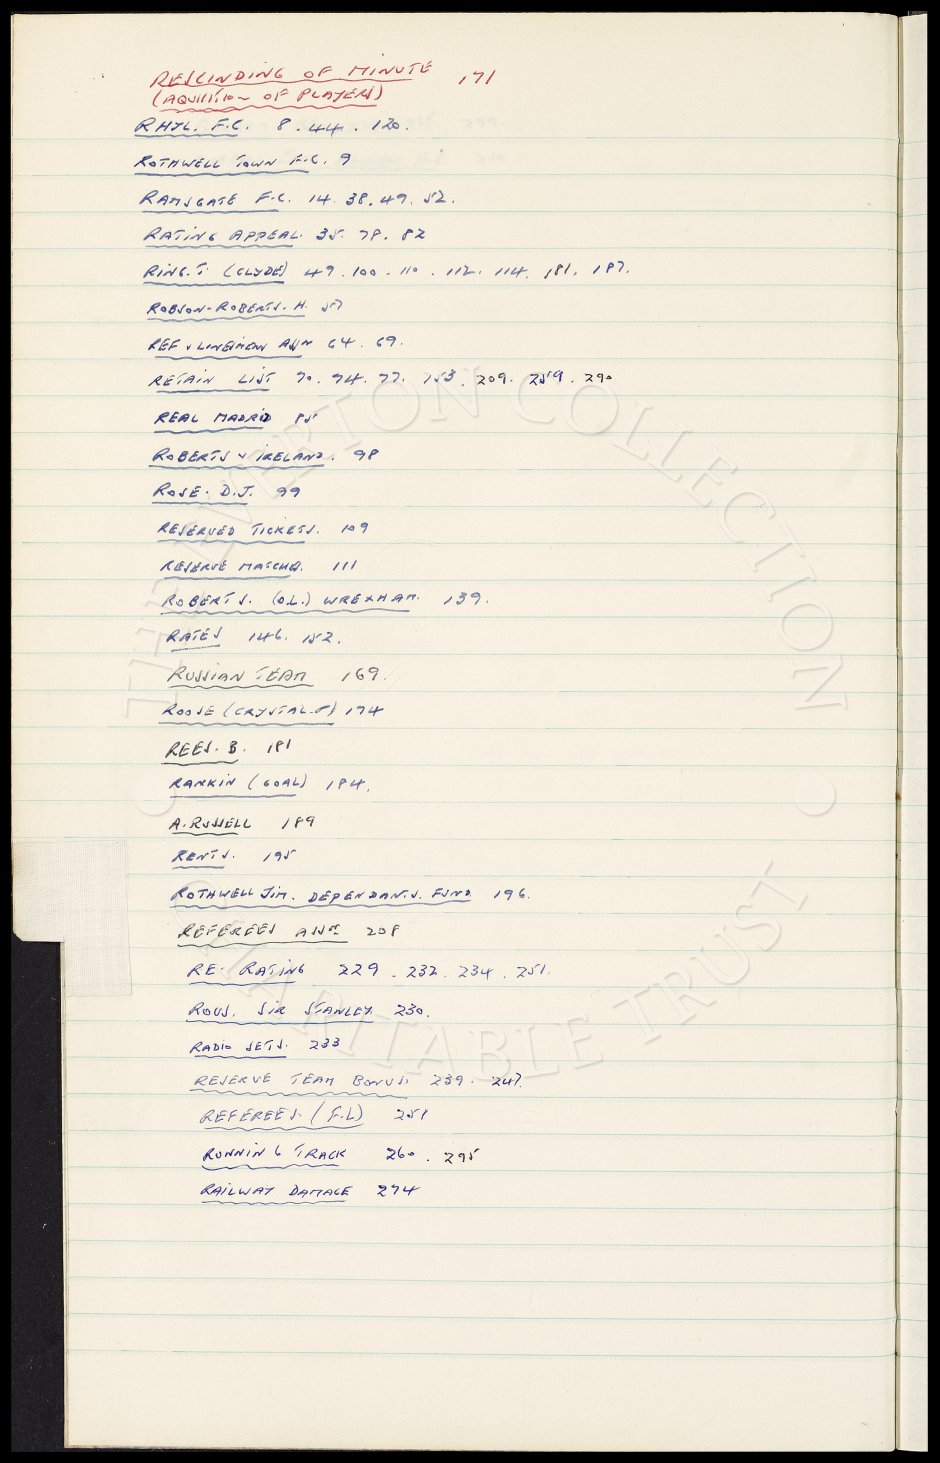 RESCINDING OF MINUTE 171
(AQUISITION OF PLAYERS)
RHYL. F.C. 8. 44. 120.
ROTHWELL TOWN F.C. 9
RAMSGATE F.C. 14. 38. 49. 52.
RATING APPEAL. 35. 78. 82
RING. T. (CLYDE) 49. 100. 110. 112. 114. 181. 187.
ROBSON-ROBERTS. H. 57
REF & LINESMEN ASSN 64. 69.
RETAIN LIST 70. 74. 77. 153. 209. 259. 290
REAL MADRID 85
ROBERTS v IRELAND. 98
ROSE. D.J. 99
RESERVED TICKETS. 109
RESERVE MATCHES. 111
ROBERTS. (O.L.) WREXHAM. 139.
RATES 146. 152.
RUSSIAN TEAM 169.
ROOSE (CRYSTAL.P) 174
REES. B. 181
RANKIN (GOAL) 184.
A. RUSSELL 189
RENTS. 195
ROTHWELL JIM. DEPENDANTS. FUND 196.
REFEREES ASSN 208
RE-RATING 229. 232. 234. 251.
ROUS. SIR STANLEY 230.
RADIO SETS. 233
RESERVE TEAM BONUS. 239. 247.
REFEREES. (F.L) 251
RUNNING TRACK 260. 295
RAILWAY DAMAGE 274
THE EVERTON COLLECTION
CHARITABLE TRUST